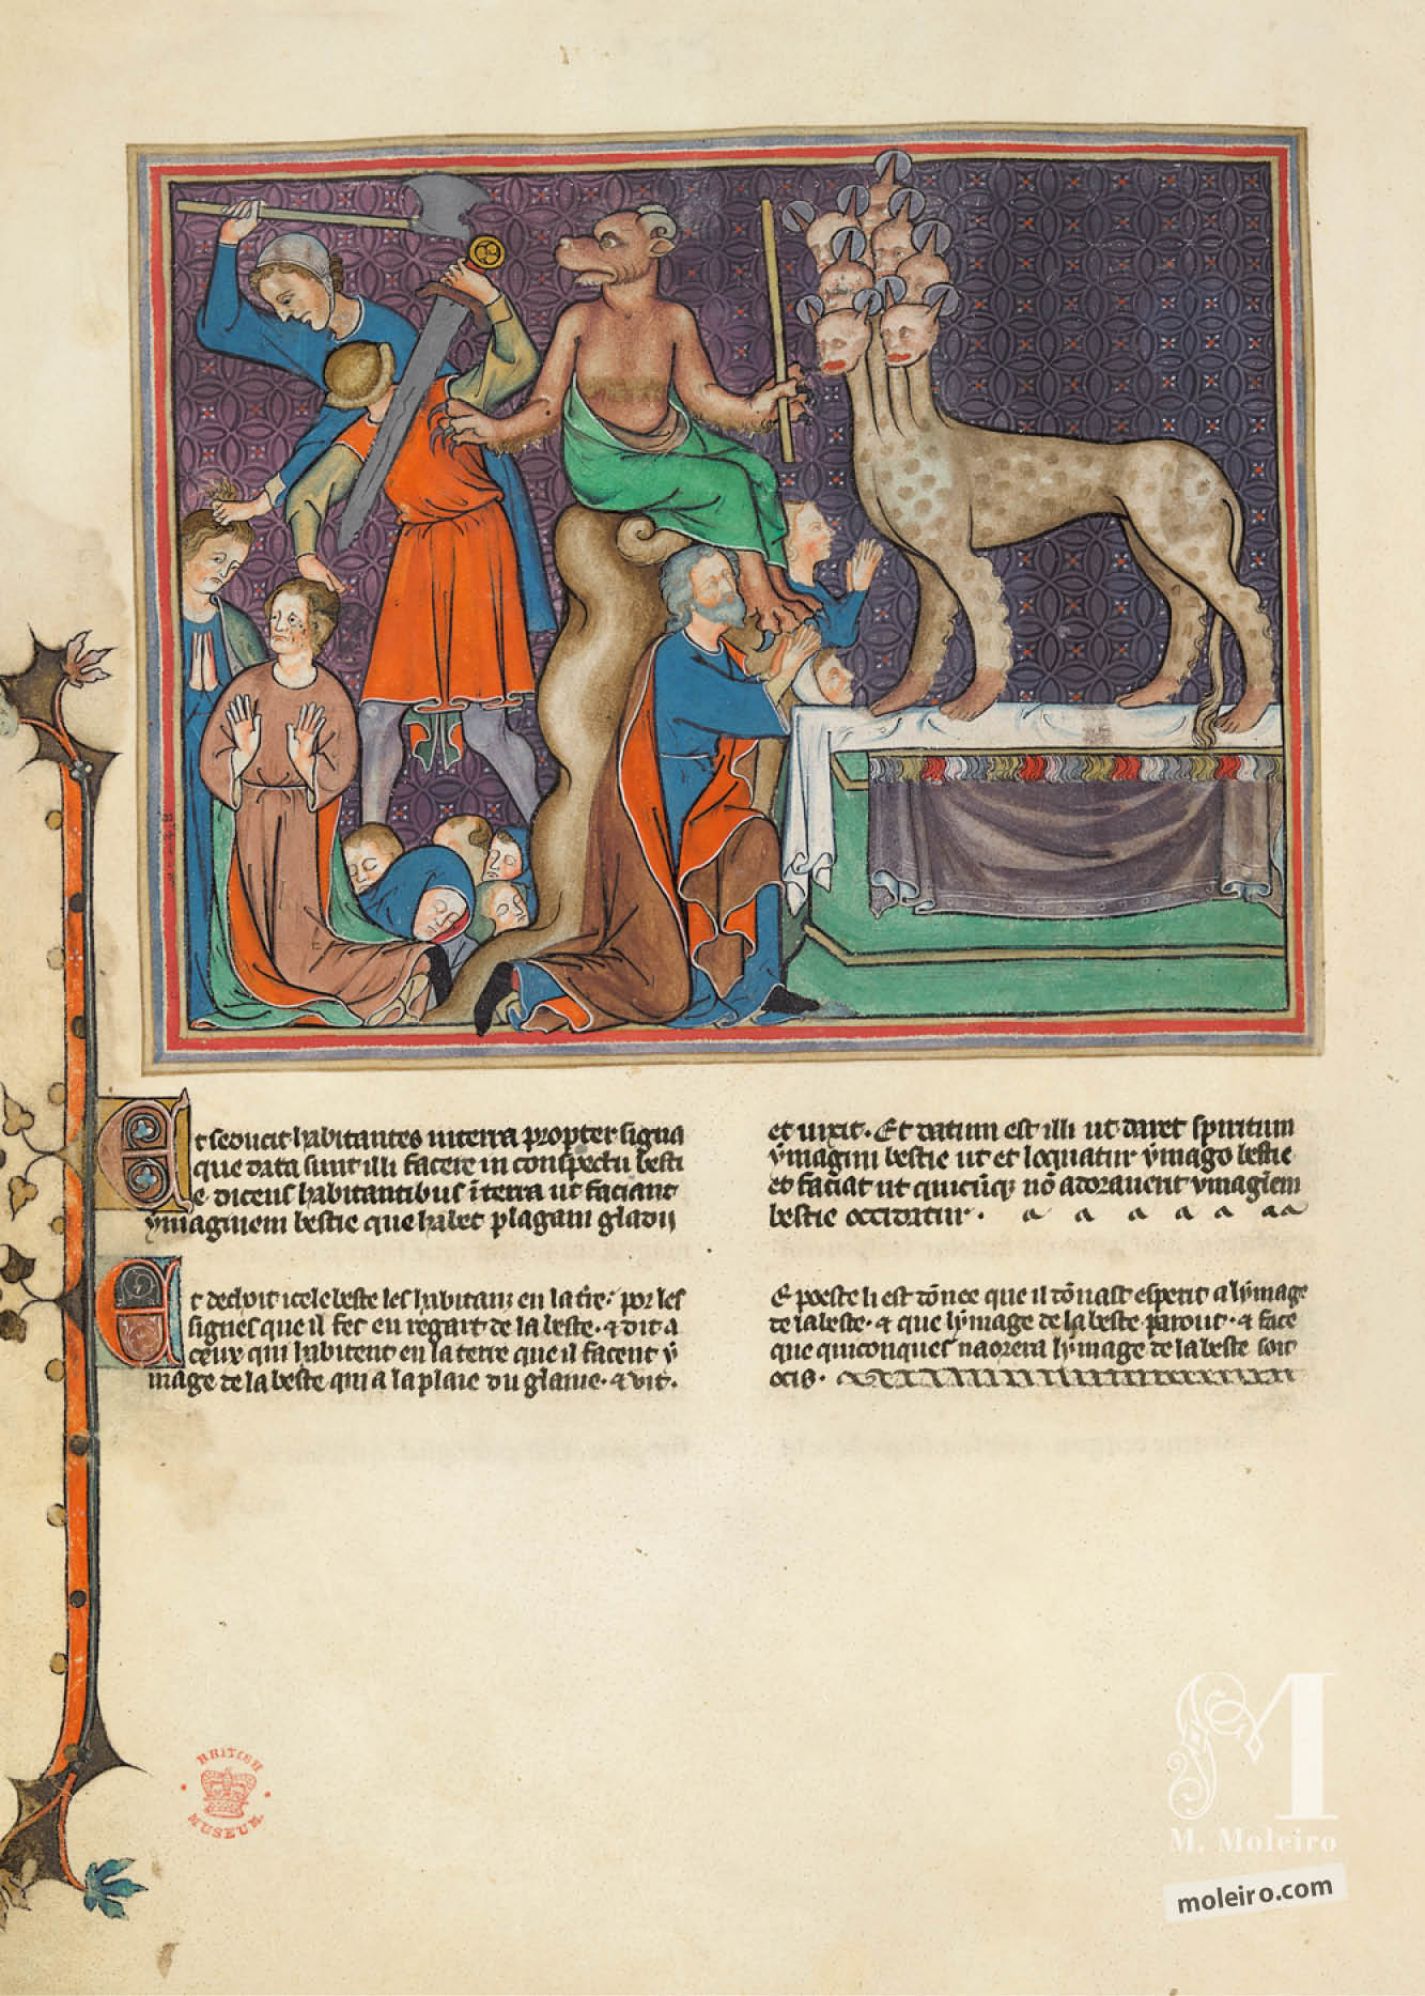 Et seducit habitantes in terra propter signa
que data sunt illi facere in conspectu besti
e dicens habitantibus ī terra ut faciant
ymaginem bestie que habet plagam gladii
et uixit. Et datum est illi ut daret spiritum
ymagini bestie ut et loquatur ymago bestie
et faciat ut quicūq; nō adorauerit ymagīem
bestie occidatur. a a a a a aa
Et decoit icele beste les habitanz en la tīe: por les
signes que il fet en regart de la beste. ⁊ dit a
ceux qui habitent en la terre que il facent y
mage de la beste qui a la plaie du glaiue. ⁊ vit.
E poeste li est dōnee que il dōnast esperit a lymage
de la beste. ⁊ que lymage de la beste parout. ⁊ face
que quiconques naorera lymage de la beste soit
ocis.
BRITISH
MUSEUM
M
M. Moleiro
moleiro.com